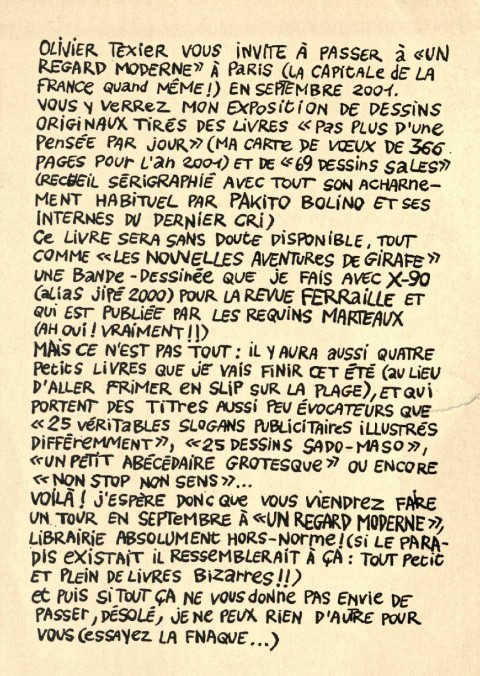 OLIVIER TEXIER VOUS INVITE À PASSER À «UN
REGARD MODERNE» À PARIS (LA CAPITALE DE LA
FRANCE QUAND MÊME!) EN SEPTEMBRE 2001.
VOUS Y VERREZ MON EXPOSITION DE DESSINS
ORIGINAUX TIRÉS DES LIVRES «PAS PLUS D'UNE
PENSÉE PAR JOUR» (MA CARTE DE VŒUX DE 366
PAGES POUR L'AN 2001) ET DE «69 DESSINS SALES»
(RECUEIL SÉRIGRAPHIÉ AVEC TOUT SON ACHARNE-
MENT HABITUEL PAR PAKITO BOLINO ET SES
INTERNES DU DERNIER CRI)
CE LIVRE SERA SANS DOUTE DISPONIBLE, TOUT
COMME «LES NOUVELLES AVENTURES DE GIRAFE»
UNE BANDE-DESSINÉE QUE JE FAIS AVEC X-90
(ALIAS JIPÉ 2000) POUR LA REVUE FERRAILLE ET
QUI EST PUBLIÉE PAR LES REQUINS MARTEAUX
(AH OUI! VRAIMENT!!)
MAIS CE N'EST PAS TOUT: IL Y AURA AUSSI QUATRE
PETITS LIVRES QUE JE VAIS FINIR CET ÉTÉ (AU LIEU
D'ALLER FRIMER EN SLIP SUR LA PLAGE), ET QUI
PORTENT DES TITRES AUSSI PEU ÉVOCATEURS QUE
«25 VÉRITABLES SLOGANS PUBLICITAIRES ILLUSTRÉS
DIFFÉREMMENT», «25 DESSINS SADO-MASO»,
«UN PETIT ABÉCÉDAIRE GROTESQUE» OU ENCORE
«NON STOP NON SENS»...
VOILÀ! J'ESPÈRE DONC QUE VOUS VIENDREZ FAIRE
UN TOUR EN SEPTEMBRE À «UN REGARD MODERNE»,
LIBRAIRIE ABSOLUMENT HORS-NORME! (SI LE PARA-
DIS EXISTAIT IL RESSEMBLERAIT À ÇA: TOUT PETIT
ET PLEIN DE LIVRES BIZARRES!!)
ET PUIS SI TOUT ÇA NE VOUS DONNE PAS ENVIE DE
PASSER, DÉSOLÉ, JE NE PEUX RIEN D'AUTRE POUR
VOUS (ESSAYEZ LA FNAQUE...)